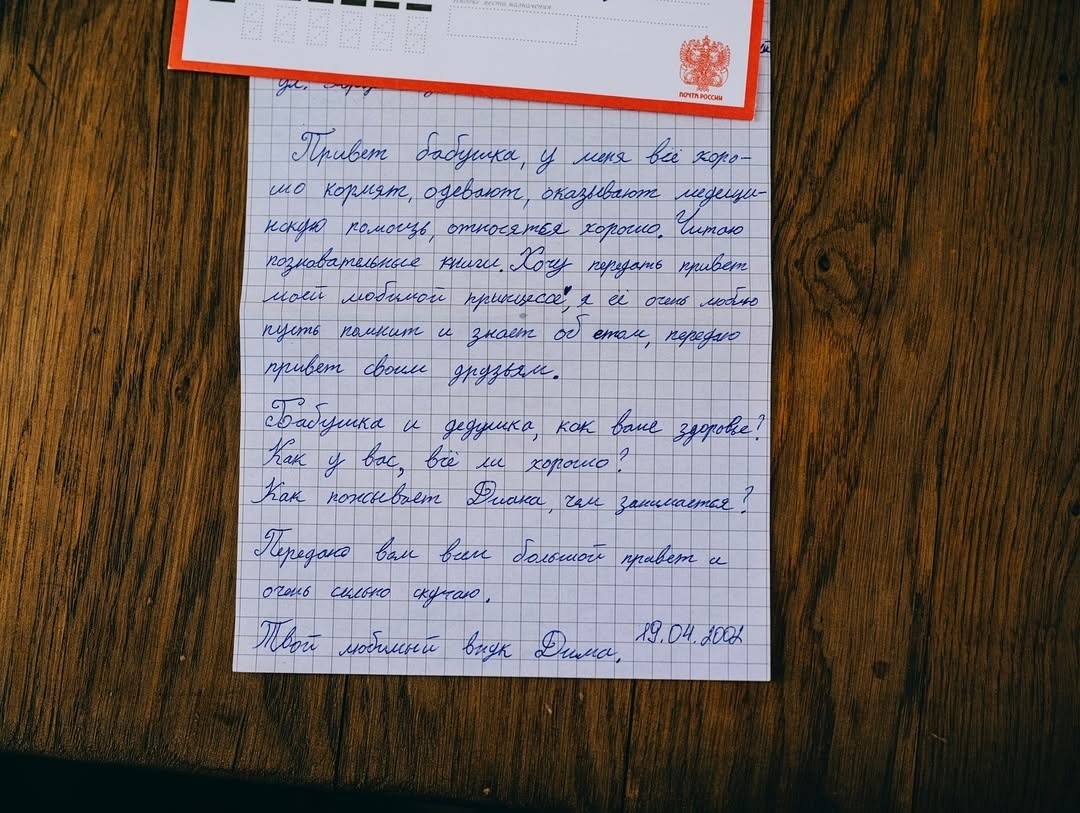 место назначения
ПОЧТА РОССИИ
ул.
Привет бабушка, у меня всё хоро-
шо кормят, одевают, оказывают медеци-
нскую помощь, относяться хорошо. Читаю
позновательные книги. Хочу передать привет
моей любимой принцессе, я её очень люблю
пусть помнит и знает об етом, передаю
привет своим друзьям.
Бабушка и дедушка, как ваше здоровье?
Как у вас, всё ли хорошо?
Как поживает Диана, чем занимается?
Передаю вам всем большой привет и
очень сильно скучаю.
19.04.2002
Твой любимый внук Дима.